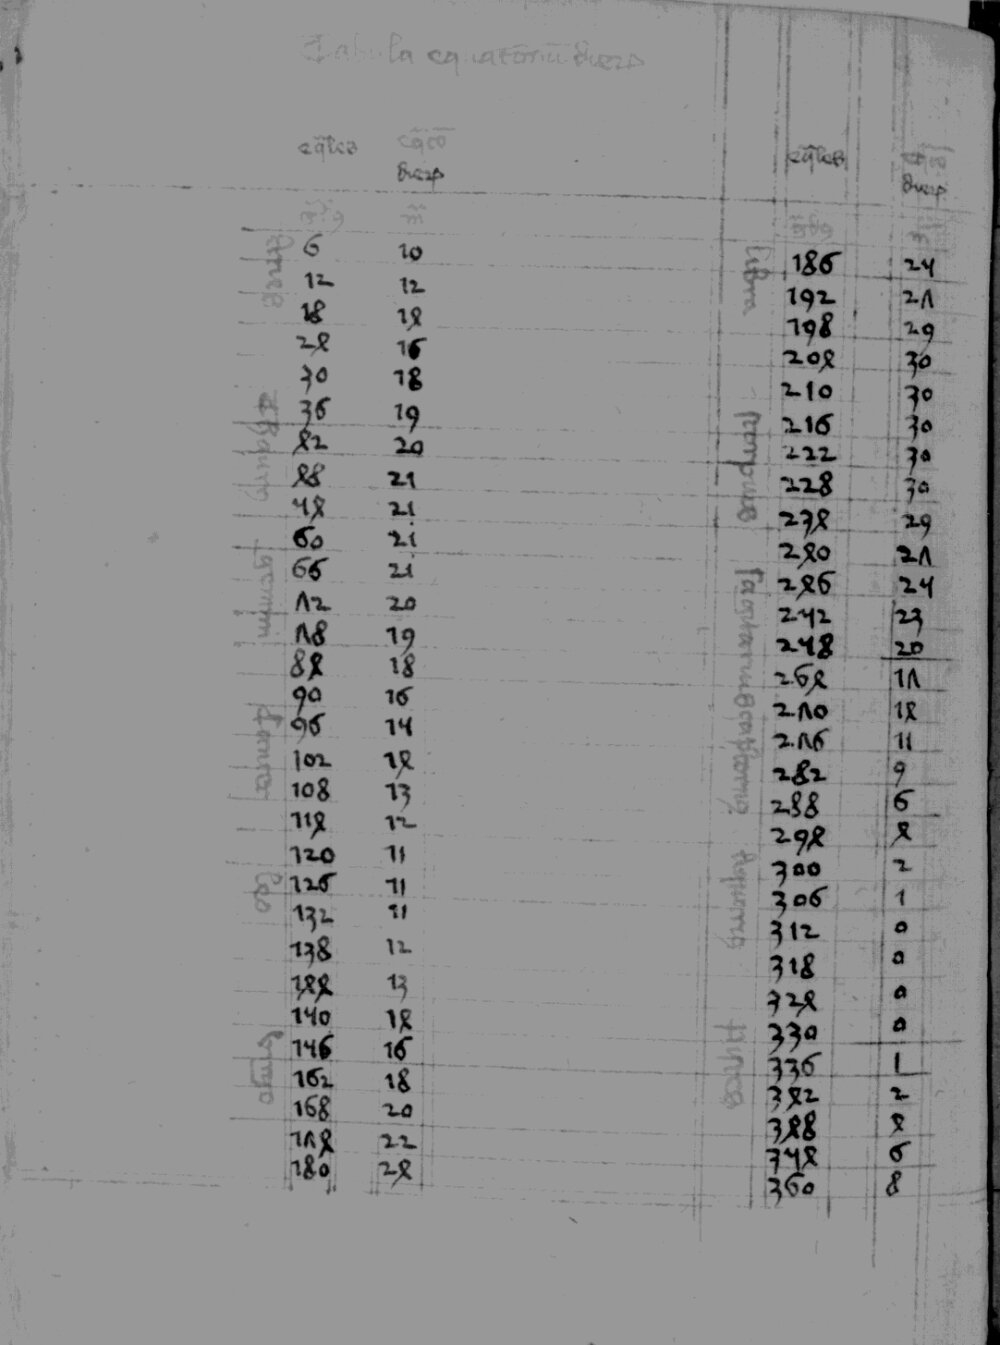 Tabula equationū dierꝝ
dierꝝ
Aries
6 10
12 12
18 14
24 16
30 18
36 19
42 20
48 21
54 21
60 21
gemini
66 21
72 20
78 19
84 18
90 16
Cancer
96 15
102 14
108 13
114 12
120 11
Leo
126 11
132 11
138 12
144 13
150 14
virgo
156 16
162 18
168 20
174 22
180 24
dierꝝ
libra
186 25
192 27
198 29
204 30
210 30
216 30
222 30
228 30
234 29
240 27
246 25
252 23
258 20
264 17
270 14
276 11
282 9
288 6
294 4
300 2
306 1
312 0
318 0
324 0
330 0
pisces
336 1
342 2
348 4
354 6
360 8